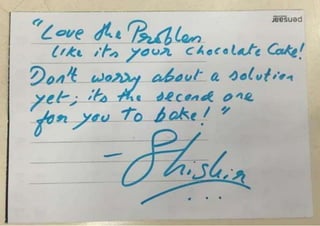 "Love the Problem
like its your chocolate cake!
Don't worry about a solution
yet; its the second one
for you to bake!"
- Shishir
pensaar